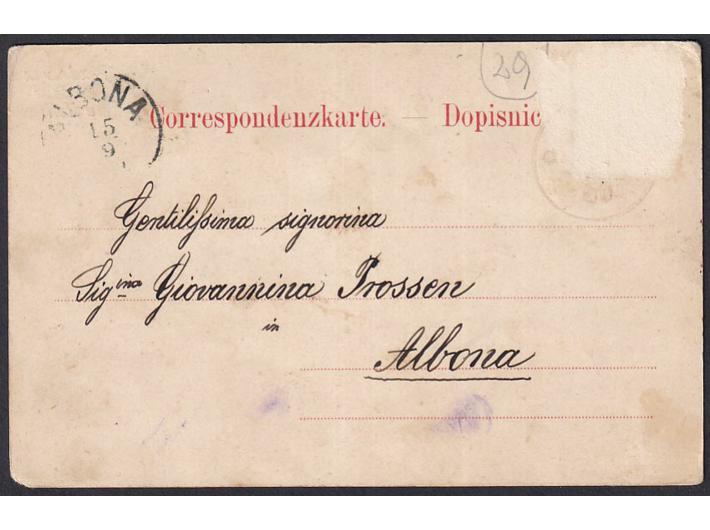 29
ALBONA
15
9
Correspondenzkarte. — Dopisnic
Gentilissima signorina
Sig.ina Giovannina Prossen
in
Albona